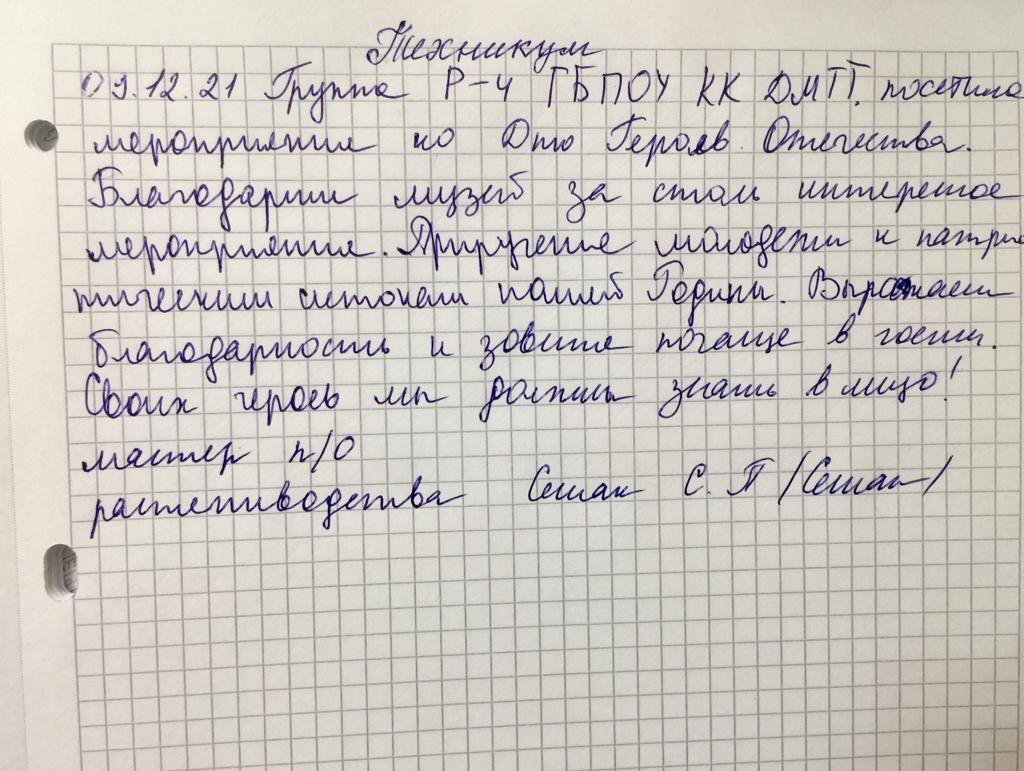 Техникум
09.12.21 Группа Р-4 ГБПОУ КК ДМТТ. посетила
мероприятие ко Дню Героев Отечества.
Благодарим музей за столь интересное
мероприятие. Приручение молодежи к патрио
тическим истокам нашей Родины. Выражаем
благодарность и зовите почаще в гости.
Своих героев мы должны знать в лицо!
мастер п/о
растениводства С. П